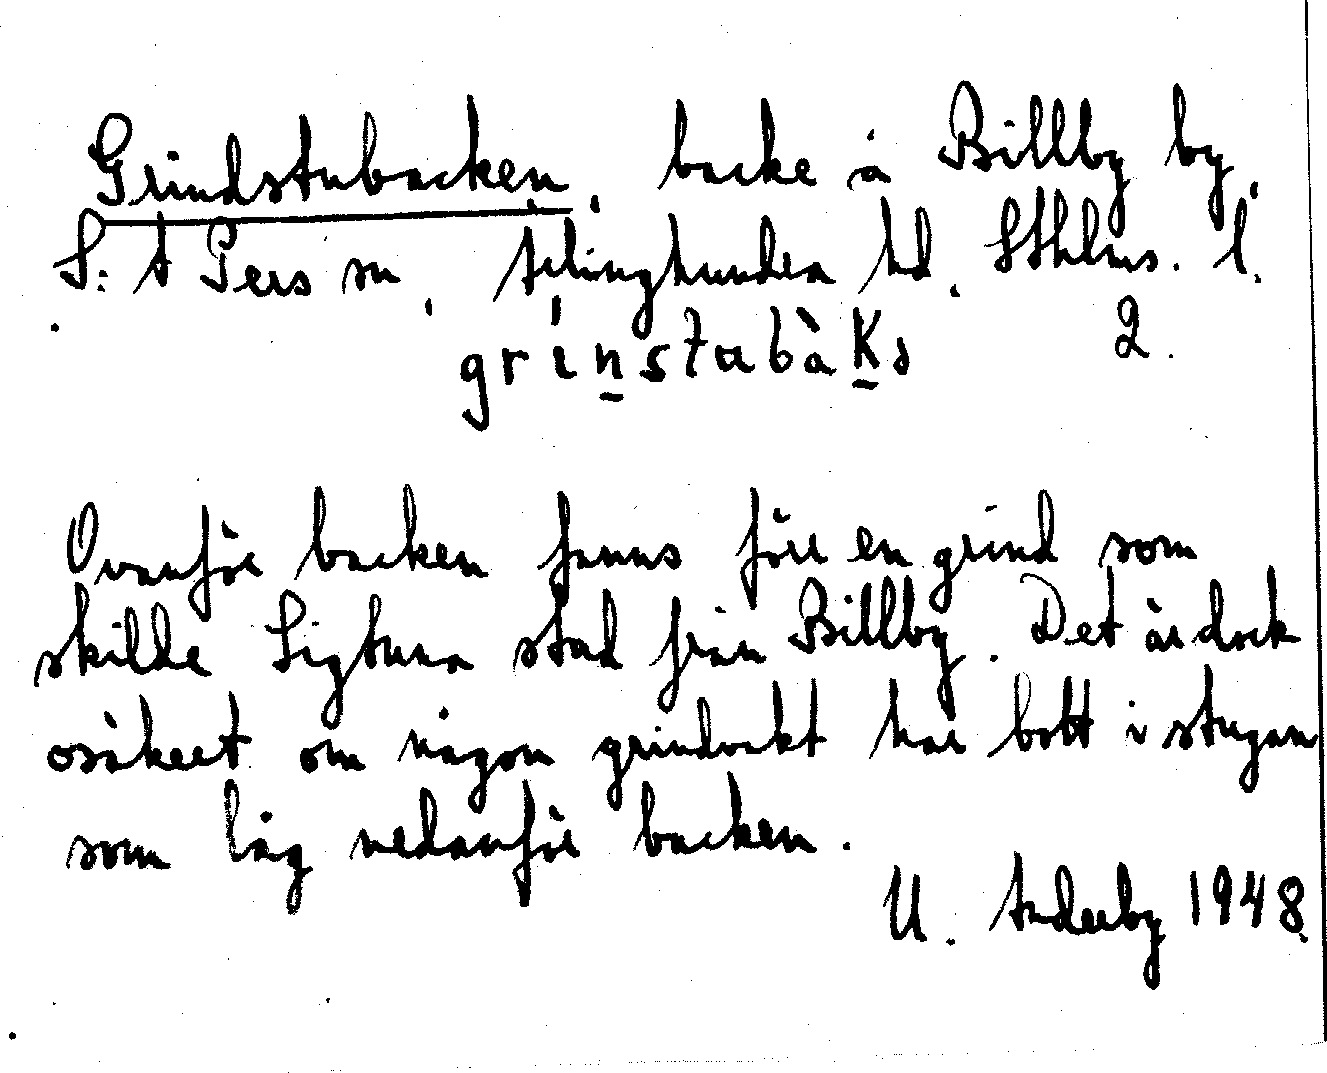 Grindstubacken, backe å Billby by,
S:t Pers sn, Ärlinghundra hd, Sthlms. l.
2.
grinstabàkə
Ovanför backen fanns förr en grind som
skilde Sigtuna stad från Billby. Det är dock
osäkert om någon grindvakt har bott i stugan
som låg nedanför backen.
U. Anderby 1948.